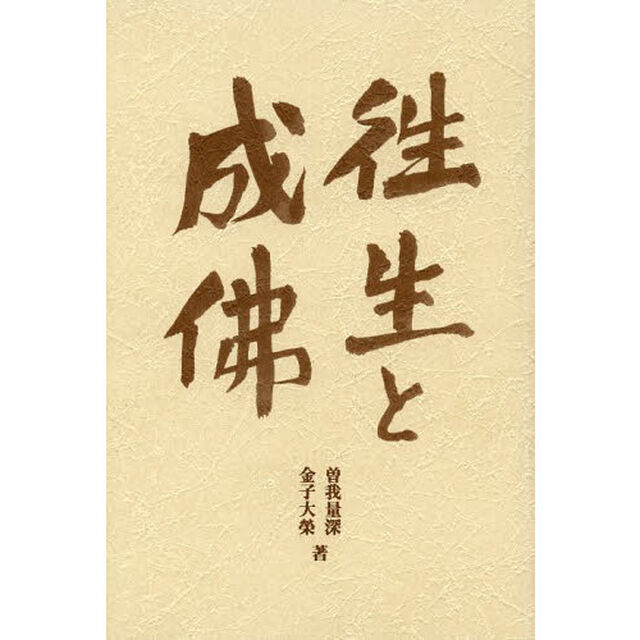 徃生と
成佛
曽我量深
金子大榮
著